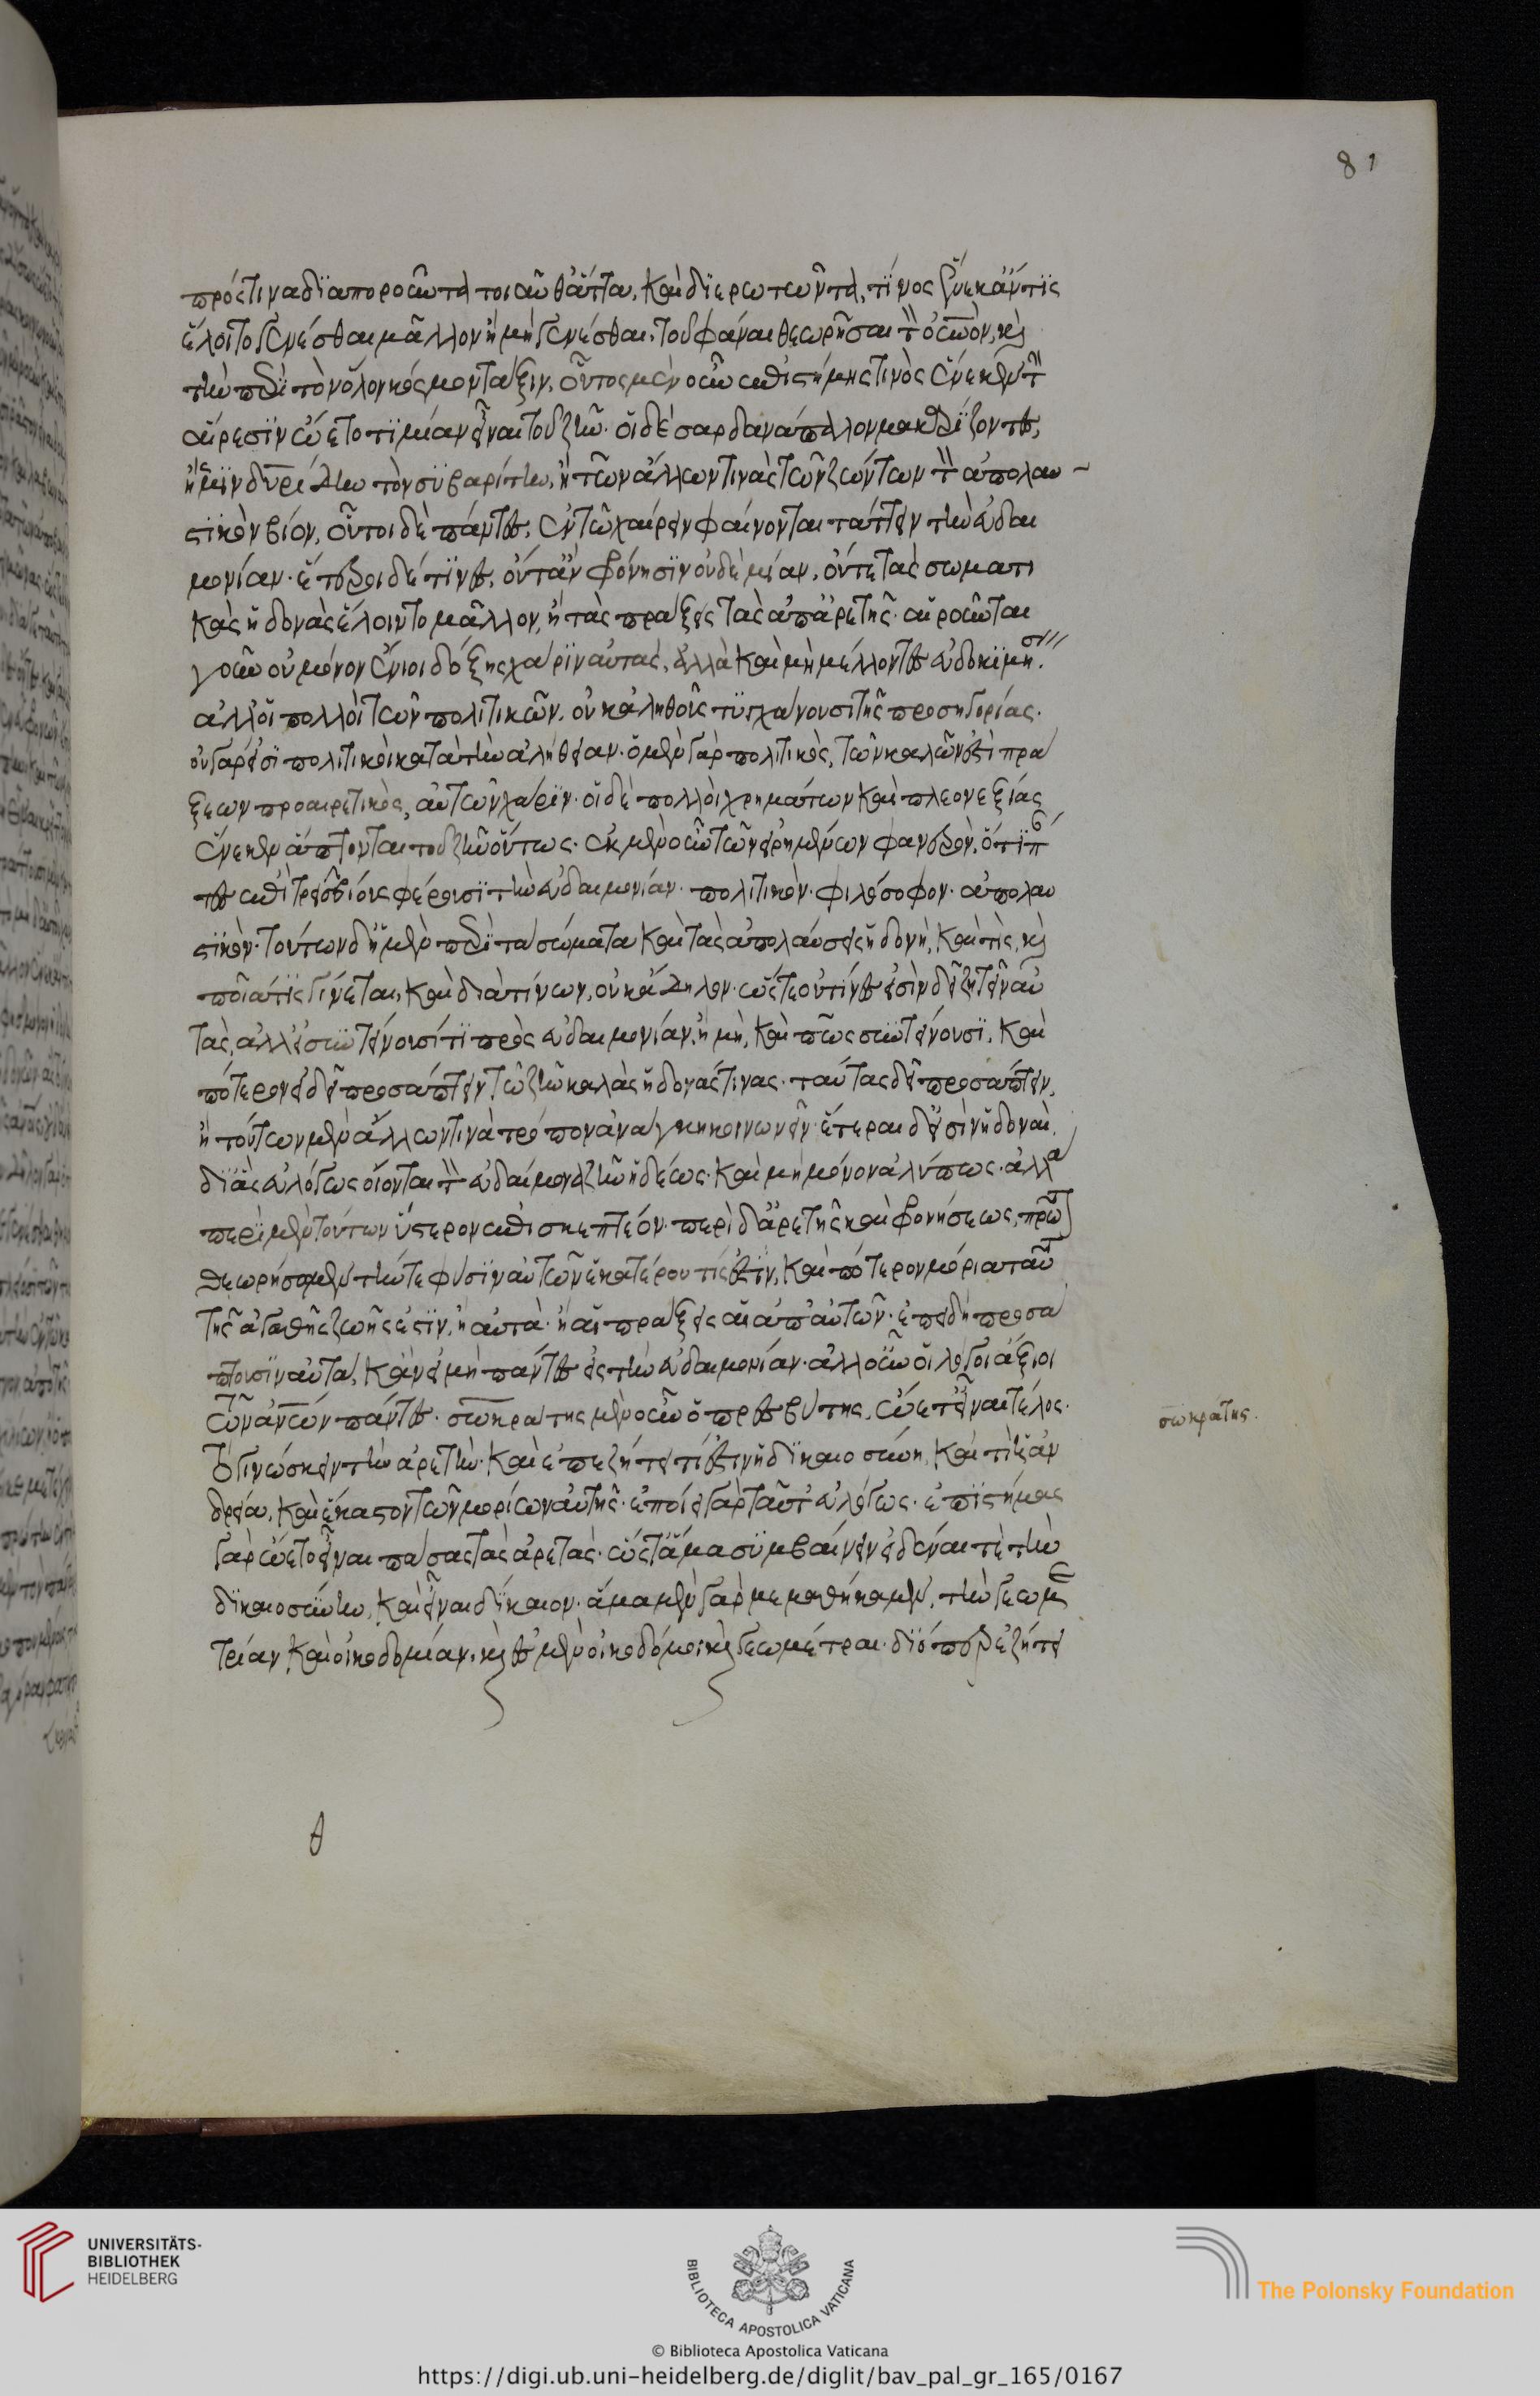 πρός τινα διαποροῦντα τοιαῦθ' ἄττα, καὶ διερωτῶντα, τίνος ἕνεκ' ἄν τις
ἕλοιτο γενέσθαι μᾶλλον ἢ μὴ γενέσθαι, τοῦ φάναι θεωρῆσαι τὸν οὐνὸν, καὶ
τὴν περὶ τὸν ὅλον κόσμον τάξιν. οὗτος μὲν οὖν ἐπιστήμης τινὸς ἕνεκεν τὴν
αἵρεσιν ᾤετο τιμίαν εἶναι τοῦ ζῆν. οἱ δὲ σαρδανάπαλλον μακαρίζοντες,
ἢ σμινδυρίδην τὸν συβαρίτην, ἢ τῶν ἄλλων τινὰς τῶν ζώντων τὸν ἀπολαυ-
στικὸν βίον, οὗτοι δὲ πάντες, ἐν τῷ χαίρειν φαίνονται τάττειν τὴν εὐδαι
μονίαν. ἕτεροι δέ τινες, οὔτ' ἂν φρόνησιν οὐδεμίαν, οὔτε τὰς σωματι
κὰς ἡδονὰς ἕλοιντο μᾶλλον, ἢ τὰς πράξεις τὰς ἀπ' ἀρετῆς. αἱροῦνται
γοῦν οὐ μόνον ἔνιοι δόξης χάριν αὐτὰς, ἀλλὰ καὶ μὴ μέλλοντες εὐδοκιμήσ.
ἀλλ' οἱ πολλοὶ τῶν πολιτικῶν, οὐκ ἀληθῶς τυγχάνουσι τῆς προσηγορίας.
οὐ γάρ εἰσι πολιτικοὶ κατὰ τὴν ἀλήθειαν. ὁ μὲν γὰρ πολιτικὸς, τῶν καλῶν ἐστὶ πρά
ξεων προαιρετικὸς, αὐτῶν χάριν. οἱ δὲ πολλοὶ χρημάτων καὶ πλεονεξίας
ἕνεκεν ἅπτονται τοῦ ζῆν οὕτως. ἐκ μὲν οὖν τῶν εἰρημένων φανερὸν, ὅτι πά
τες ἐπὶ τρεῖς βίους φέρουσι τὴν εὐδαιμονίαν. πολιτικὸν. φιλόσοφον. ἀπολαυ
στικὸν. τούτων δ' ἡ μὲν περὶ τὰ σώματα καὶ τὰς ἀπολαύσεις ἡδονὴ, καὶ τίς, καὶ
ποία τις γίνεται, καὶ διὰ τίνων, οὐκ ἄδηλον. ὥστε οὐ τίνες εἰσὶν δεῖ ζητεῖν αὐ
τὰς, ἀλλ' εἰ συντείνουσί τι πρὸς εὐδαιμονίαν, ἢ μὴ, καὶ πῶς συντείνουσι, καὶ
πότερον εἰ δεῖ προσάπτειν τῷ ζῆν καλὰς ἡδονάς τινας, ταύτας δεῖ προσάπτειν,
ἢ τούτων μὲν ἄλλων τινὰ τρόπον ἀνάγκη κοινωνεῖν. ἕτεραι δ' εἰσὶν ἡδοναὶ,
δι' ἃς εὐλόγως οἴονται τὸν εὐδαίμονα ζῆν ἡδέως. καὶ μὴ μόνον ἀλύπως. ἀλλὰ
περὶ μὲν τούτων ὕστερον ἐπισκεπτέον. περὶ δ' ἀρετῆς καὶ φρονήσεως, πρῶτ
θεωρήσωμεν τήν τε φύσιν αὐτῶν ἑκατέρου τίς ἐστιν, καὶ πότερον μόρια ταῦτ
τῆς ἀγαθῆς ζωῆς ἐστὶν, ἢ αὐτὰ. ἢ αἱ πράξεις αἱ ἀπ' αὐτῶν. ἐπειδὴ προσά
πτουσιν αὐτὰ, κἂν εἰ μὴ πάντες εἰς τὴν εὐδαιμονίαν. ἀλλ' οὖν οἱ λόγοι ἄξιοι
τῶν ἀνῶν πάντες. σωκράτης μὲν οὖν ὁ πρεσβύτης, ᾤετ' εἶναι τέλος.
τὸ γινώσκειν τὴν ἀρετὴν. καὶ ἐπεζήτει τί ἐστιν ἡ δικαιοσύνη, καὶ τί ἡ ἀν
δρεία, καὶ ἕκαστον τῶν μορίων αὐτῆς. ἐποίει γὰρ ταῦτ' εὐλόγως. ἐπιστήμας
γὰρ ᾤετο εἶναι πάσας τὰς ἀρετὰς. ὥσθ' ἅμα συμβαίνειν εἰδέναι τε τὴν
δικαιοσύνην, καὶ εἶναι δίκαιον. ἅμα μὲν γὰρ μεμαθήκαμεν, τὴν γεωμε
τρίαν καὶ οἰκοδομίαν, καὶ ἐσμὲν οἰκοδόμοι καὶ γεωμέτραι. διόπερ ἐζήτει
σωκράτης.
θ
81
UNIVERSITÄTS-
BIBLIOTHEK
HEIDELBERG
BIBLIOTECA APOSTOLICA VATICANA
© Biblioteca Apostolica Vaticana
The Polonsky Foundation
https://digi.ub.uni-heidelberg.de/diglit/bav_pal_gr_165/0167